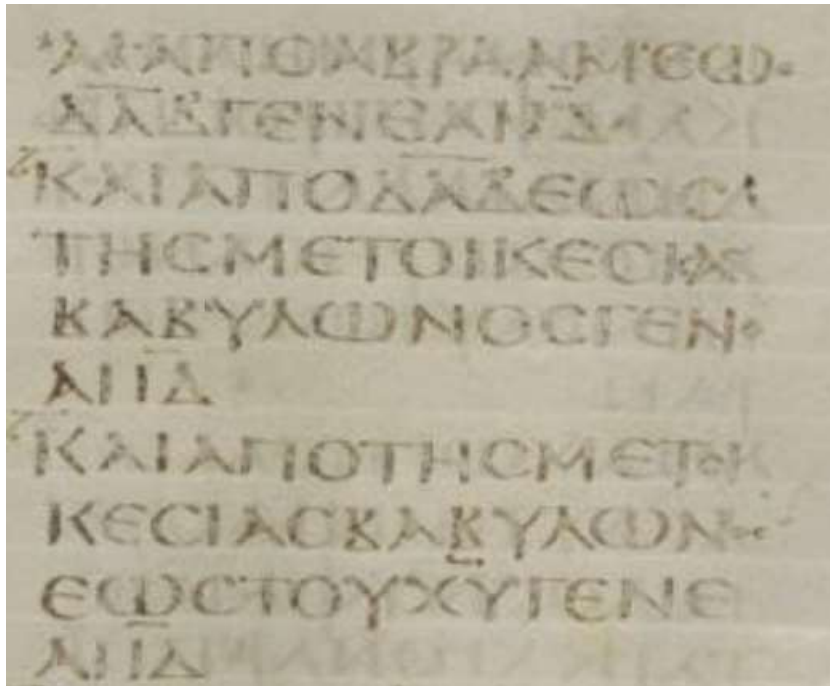 ΑΙΑΠΟΑΒΡΑΑΜΕΩϹ
ΔΑΔΓΕΝΕΑΙΙΔ
ΚΑΙΑΠΟΔΑΔΕΩϹ
ΤΗϹΜΕΤΟΙΚΕϹΙΑϹ
ΒΑΒΥΛΩΝΟϹΓΕΝΕ
ΑΙΙΔ
ΚΑΙΑΠΟΤΗϹΜΕΤΟΙ
ΚΕϹΙΑϹΒΑΒΥΛΩΝΟϹ
ΕΩϹΤΟΥΧΥΓΕΝΕ
ΑΙΙΔ